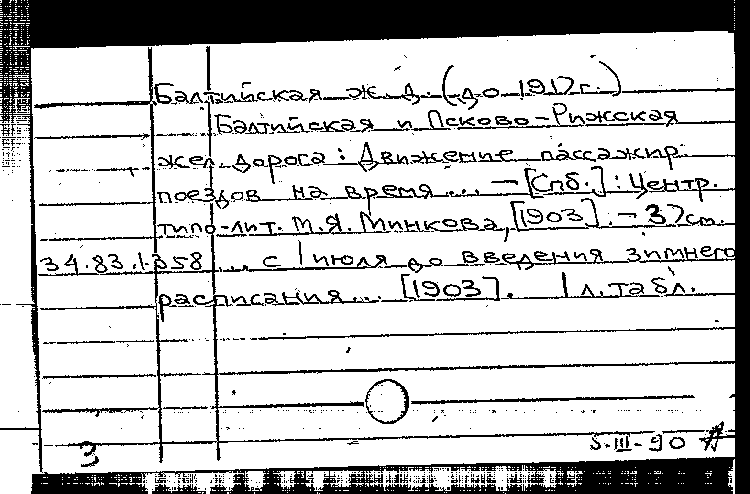 Балтийская ж. д. (до 1917г.)
Балтийская и Псково-Рижская
жел. дорога: Движение пассажир.
поездов на время... — [Спб.]: Центр.
типо-лит. М.Я. Минкова, [1903]. — 37см.
34.83.1.358 ... с 1 июля до введения зимнего
расписания... [1903]. 1 л. табл.
3 5.III-90